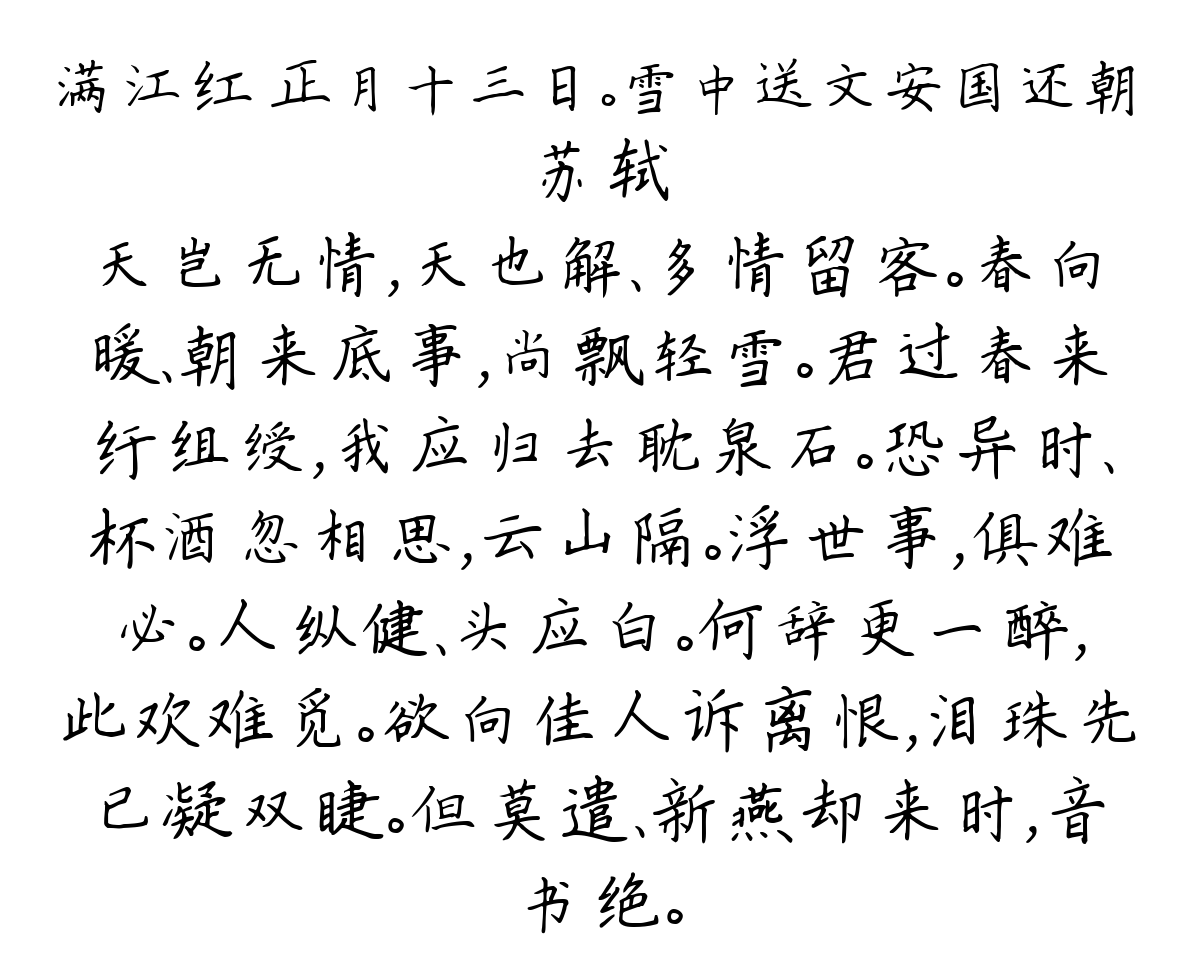 满江红 正月十三日。雪中送文安国还朝
苏轼
天岂无情,天也解、多情留客。春向
暖、朝来底事,尚飘轻雪。君过春来
纡组绶,我应归去耽泉石。恐异时、
杯酒忽相思,云山隔。浮世事,俱难
必。人纵健、头应白。何辞更一醉,
此欢难觅。欲向佳人诉离恨,泪珠先
已凝双睫。但莫遣、新燕却来时,音
书绝。